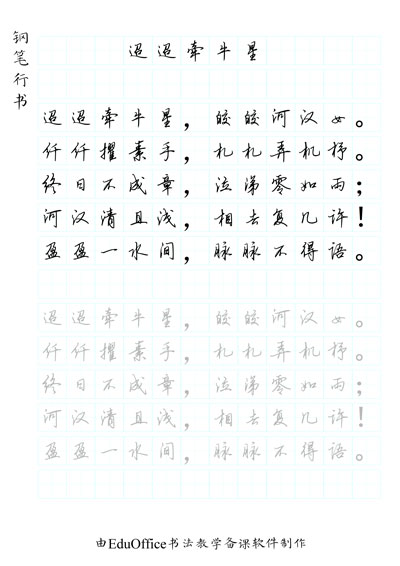 钢笔行书
迢迢牵牛星
迢迢牵牛星，皎皎河汉女。
仟仟擢素手，札札弄机杼。
终日不成章，泣涕零如雨；
河汉清且浅，相去复几许！
盈盈一水间，脉脉不得语。
迢迢牵牛星，皎皎河汉女。
仟仟擢素手，札札弄机杼。
终日不成章，泣涕零如雨；
河汉清且浅，相去复几许！
盈盈一水间，脉脉不得语。
由EduOffice书法教学备课软件制作